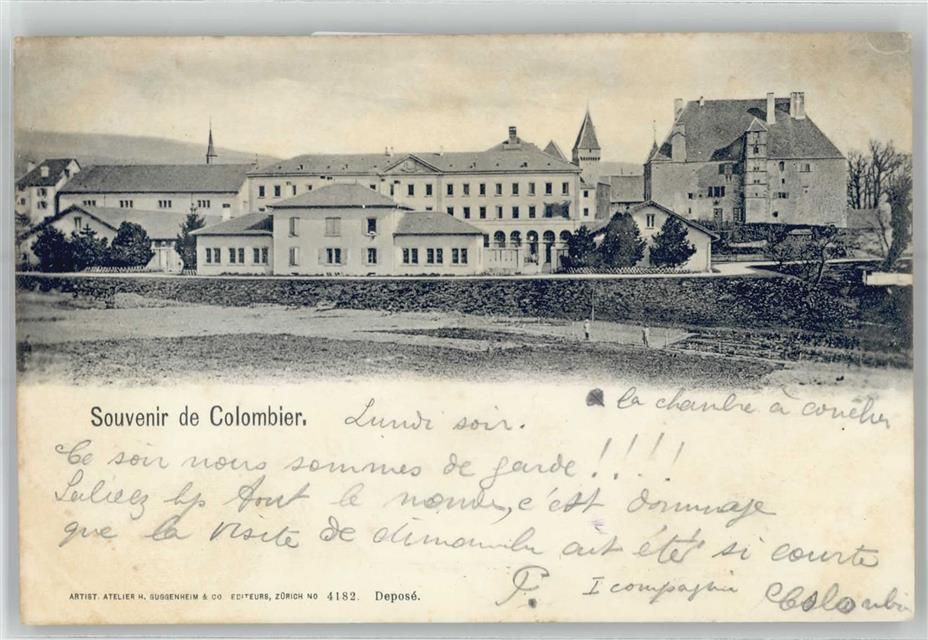 Souvenir de Colombier. Lundi soir. à la chambre à coucher
Ce soir nous sommes de garde!!!!
Saluez bp tout le monde, c'est dommage
que la visite de dimanche ait été si courte
P. I compagnie Colombier
ARTIST. ATELIER H. GUGGENHEIM & CO EDITEURS, ZÜRICH NO 4182. Deposé.